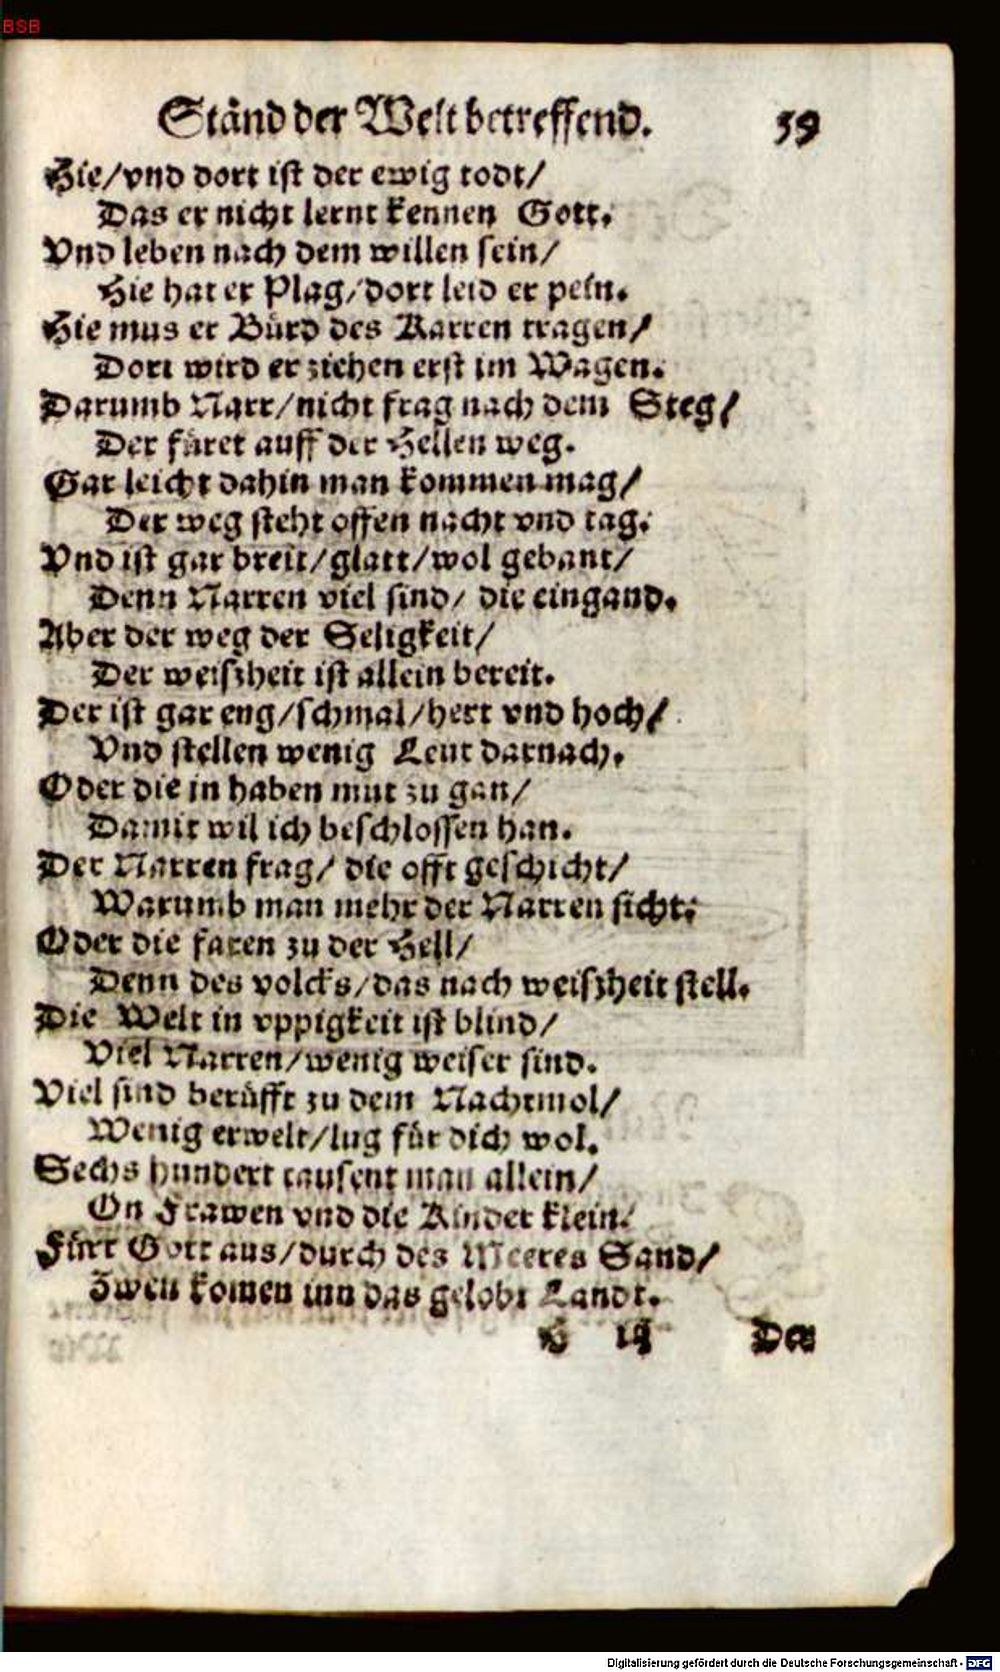 BSB
Ständ der Welt betreffend. 59
Hie/vnd dort ist der ewig todt/
Das er nicht lernt kennen Gott.
Vnd leben nach dem willen sein/
Hie hat er Plag/dort leid er pein.
Hie mus er Bürd des Karren tragen/
Dort wird er ziehen erst im Wagen.
Darumb Narr/nicht frag nach dem Steg/
Der füret auff der Hellen weg.
Gar leicht dahin man kommen mag/
Der weg steht offen nacht vnd tag.
Vnd ist gar breit/glatt/wol gebant/
Denn Narren viel sind/ die eingand.
Aber der weg der Seligkeit/
Der weißheit ist allein bereit.
Der ist gar eng/schmal/hert vnd hoch/
Vnd stellen wenig Leut darnach.
Oder die in haben mut zu gan/
Damit wil ich beschlossen han.
Der Narren frag/ die offt geschicht/
Warumb man mehr der Narren sicht.
Oder die faren zu der Hell/
Denn des volcks/das nach weißheit stell.
Die Welt in vppigkeit ist blind/
Viel Narren/wenig weiser sind.
Viel sind berüfft zu dem Nachtmol/
Wenig erwelt/lug für dich wol.
Sechs hundert tausent man allein/
On Frawen vnd die Kinder klein.
Fürt Gott aus/durch des Meeres Sand/
Zwen komen inn das gelobt Landt.
H iij Der
Digitalisierung gefördert durch die Deutsche Forschungsgemeinschaft - DFG